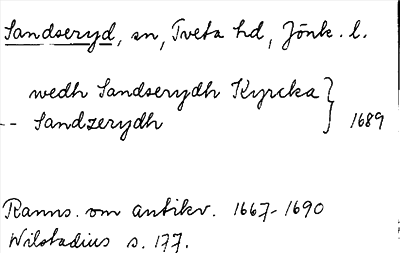 Sandseryd, sn, Tveta hd, Jönk. l.
wedh Sandserydh Kyrcka
-- Sandzerydh } 1689
Ranns. om antikv. 1667-1690
Wilstadius s. 177.